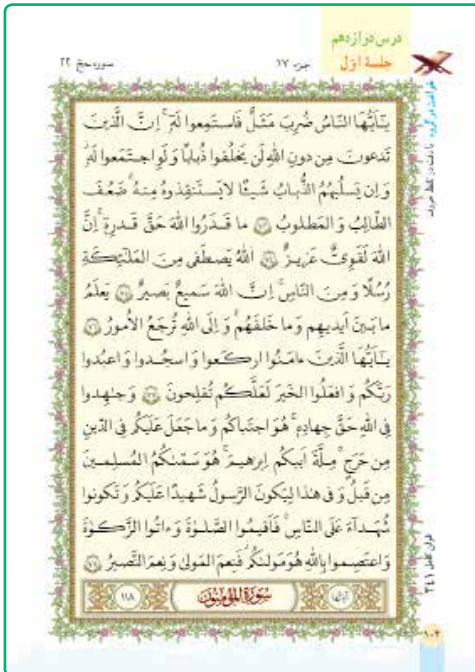 درس دوازدهم
جلسهٔ اوّل
جزء ۱۷
سوره حج ۲۲
يٰٓاَيُّهَا النّاسُ ضُرِبَ مَثَلٌ فَاستَمِعوا لَهٗ اِنَّ الَّذينَ
تَدعونَ مِن دونِ اللّٰهِ لَن يَخلُقوا ذُبابًا وَ لَوِ اجتَمَعوا لَهٗ
وَ اِن يَسلُبهُمُ الذُّبابُ شَيـًٔا لا يَستَنقِذوهُ مِنهُ ضَعُفَ
الطّالِبُ وَ المَطلوبُ ۷۳ ما قَدَرُوا اللّٰهَ حَقَّ قَدرِهٖ اِنَّ
اللّٰهَ لَقَوِىٌّ عَزيزٌ ۷۴ اَللّٰهُ يَصطَفى مِنَ المَلٰٓئِكَةِ
رُسُلًا وَ مِنَ النّاسِ اِنَّ اللّٰهَ سَميعٌ بَصيرٌ ۷۵ يَعلَمُ
ما بَينَ اَيديهِم وَ ما خَلفَهُم وَ اِلَى اللّٰهِ تُرجَعُ الاُمورُ ۷۶
يٰٓاَيُّهَا الَّذينَ ءامَنُوا اركَعوا وَ اسجُدوا وَ اعبُدوا
رَبَّكُم وَ افعَلُوا الخَيرَ لَعَلَّكُم تُفلِحونَ ۷۷ وَ جٰهِدوا
فِى اللّٰهِ حَقَّ جِهادِهٖ هُوَ اجتَباكُم وَ ما جَعَلَ عَلَيكُم فِى الدّينِ
مِن حَرَجٍ مِلَّةَ اَبيكُم اِبرٰهيمَ هُوَ سَمّٰىكُمُ المُسلِمينَ
مِن قَبلُ وَ فى هٰذا لِيَكونَ الرَّسولُ شَهيدًا عَلَيكُم وَ تَكونوا
شُهَدآءَ عَلَى النّاسِ فَاَقيمُوا الصَّلوٰةَ وَ ءاتُوا الزَّكوٰةَ
وَ اعتَصِموا بِاللّٰهِ هُوَ مَولىٰكُم فَنِعمَ المَولىٰ وَ نِعمَ النَّصيرُ ۷۸
سُورَةُ المُؤمِنُون
۱۱۸
۱۰۲